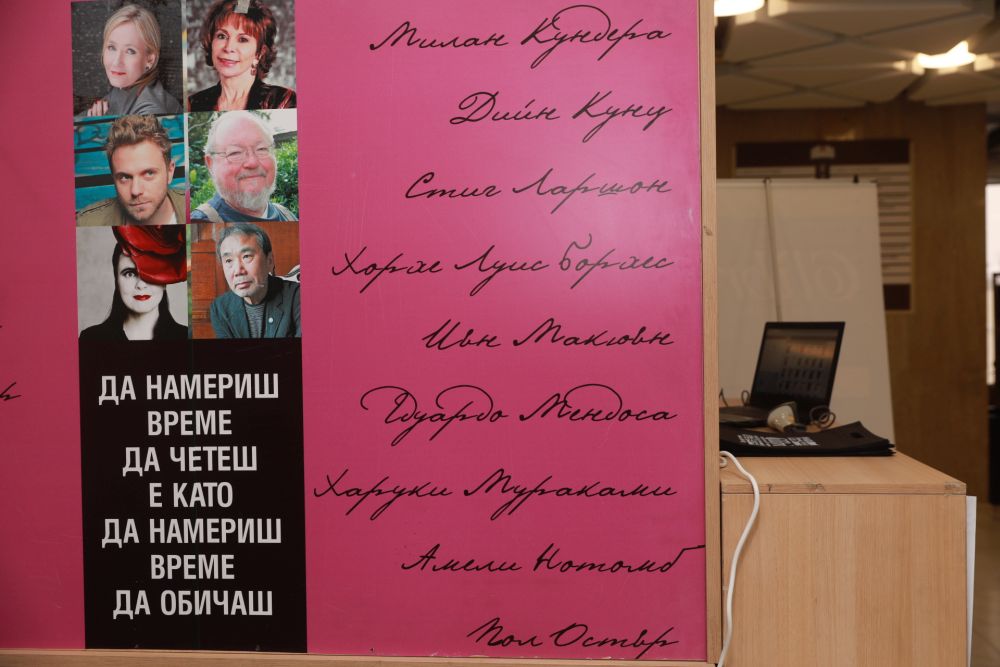 ДА НАМЕРИШ
ВРЕМЕ
ДА ЧЕТЕШ
Е КАТО
ДА НАМЕРИШ
ВРЕМЕ
ДА ОБИЧАШ
Милан Кундера
Дийн Кунц
Стиг Ларшон
Хорхе Луис Борхес
Иън Макюън
Едуардо Мендоса
Харуки Мураками
Амели Нотомб
Пол Остър